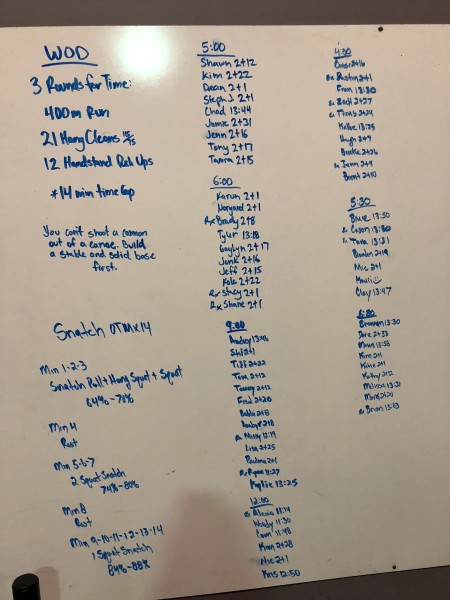 WOD
3 Rounds for Time:
400m Run
21 Hang Cleans
12 Handstand
*14 min time Cap
You can't shoot a cannon
out of a canoe. Build
a stable and solid base
first.
Snatch OTMx14
Min 1-2-3
Snatch Pull + Hang Squat + Squat
64%-70%
Min 4
Rest
Min 5-6-7
2 Squat Snatch
74%-80%
Min 8
Rest
Min 9-10-11-12-13-14
1 Squat Snatch
84%-88%
5:00
Shawn 2+12
Kim 2+22
Dean 2+1
Steph J. 2+1
Chad 13:44
Jamie 2+31
Jenn 2+16
Tony 2+17
Tamra 2+15
6:00
Karun 2+1
2+1
Rx Brady 2+8
Tyler 13:18
Gaylyn 2+17
2+16
Jeff 2+15
Kale 2+22
Rx Stacy 2+1
Rx Shane 2+1
9:00
Audrey
2+1
Tiff 2+22
Tom 2+12
Tammy 2+12
Fred 2+20
2+18
2+18
Rx Missy
Lisa 2+25
Paulina 2+1
Rx Ryan 11:27
Kylie 13:25
12:00
Rx Alexis 11:14
Mindy 11:30
11:48
2+28
Nic 2+1
Kris 12:50
4:30
2+16
Rx Dustin 2+1
13:30
Rx Zach 2+27
2+24
13:25
Hugh 2+9
Brooke 2+26
Rx Jenn 2+9
Brent 2+10
5:30
13:50
Rx Cason
Rx Tara 13:31
2+19
Mic 2+1
Clay 13:47
6:30
Brennan 13:30
2+33
13:58
Kim 2+1
Katie 2+1
Kathy 2+12
Melissa 13:31
Mark 2+20
Rx Brian 13:13